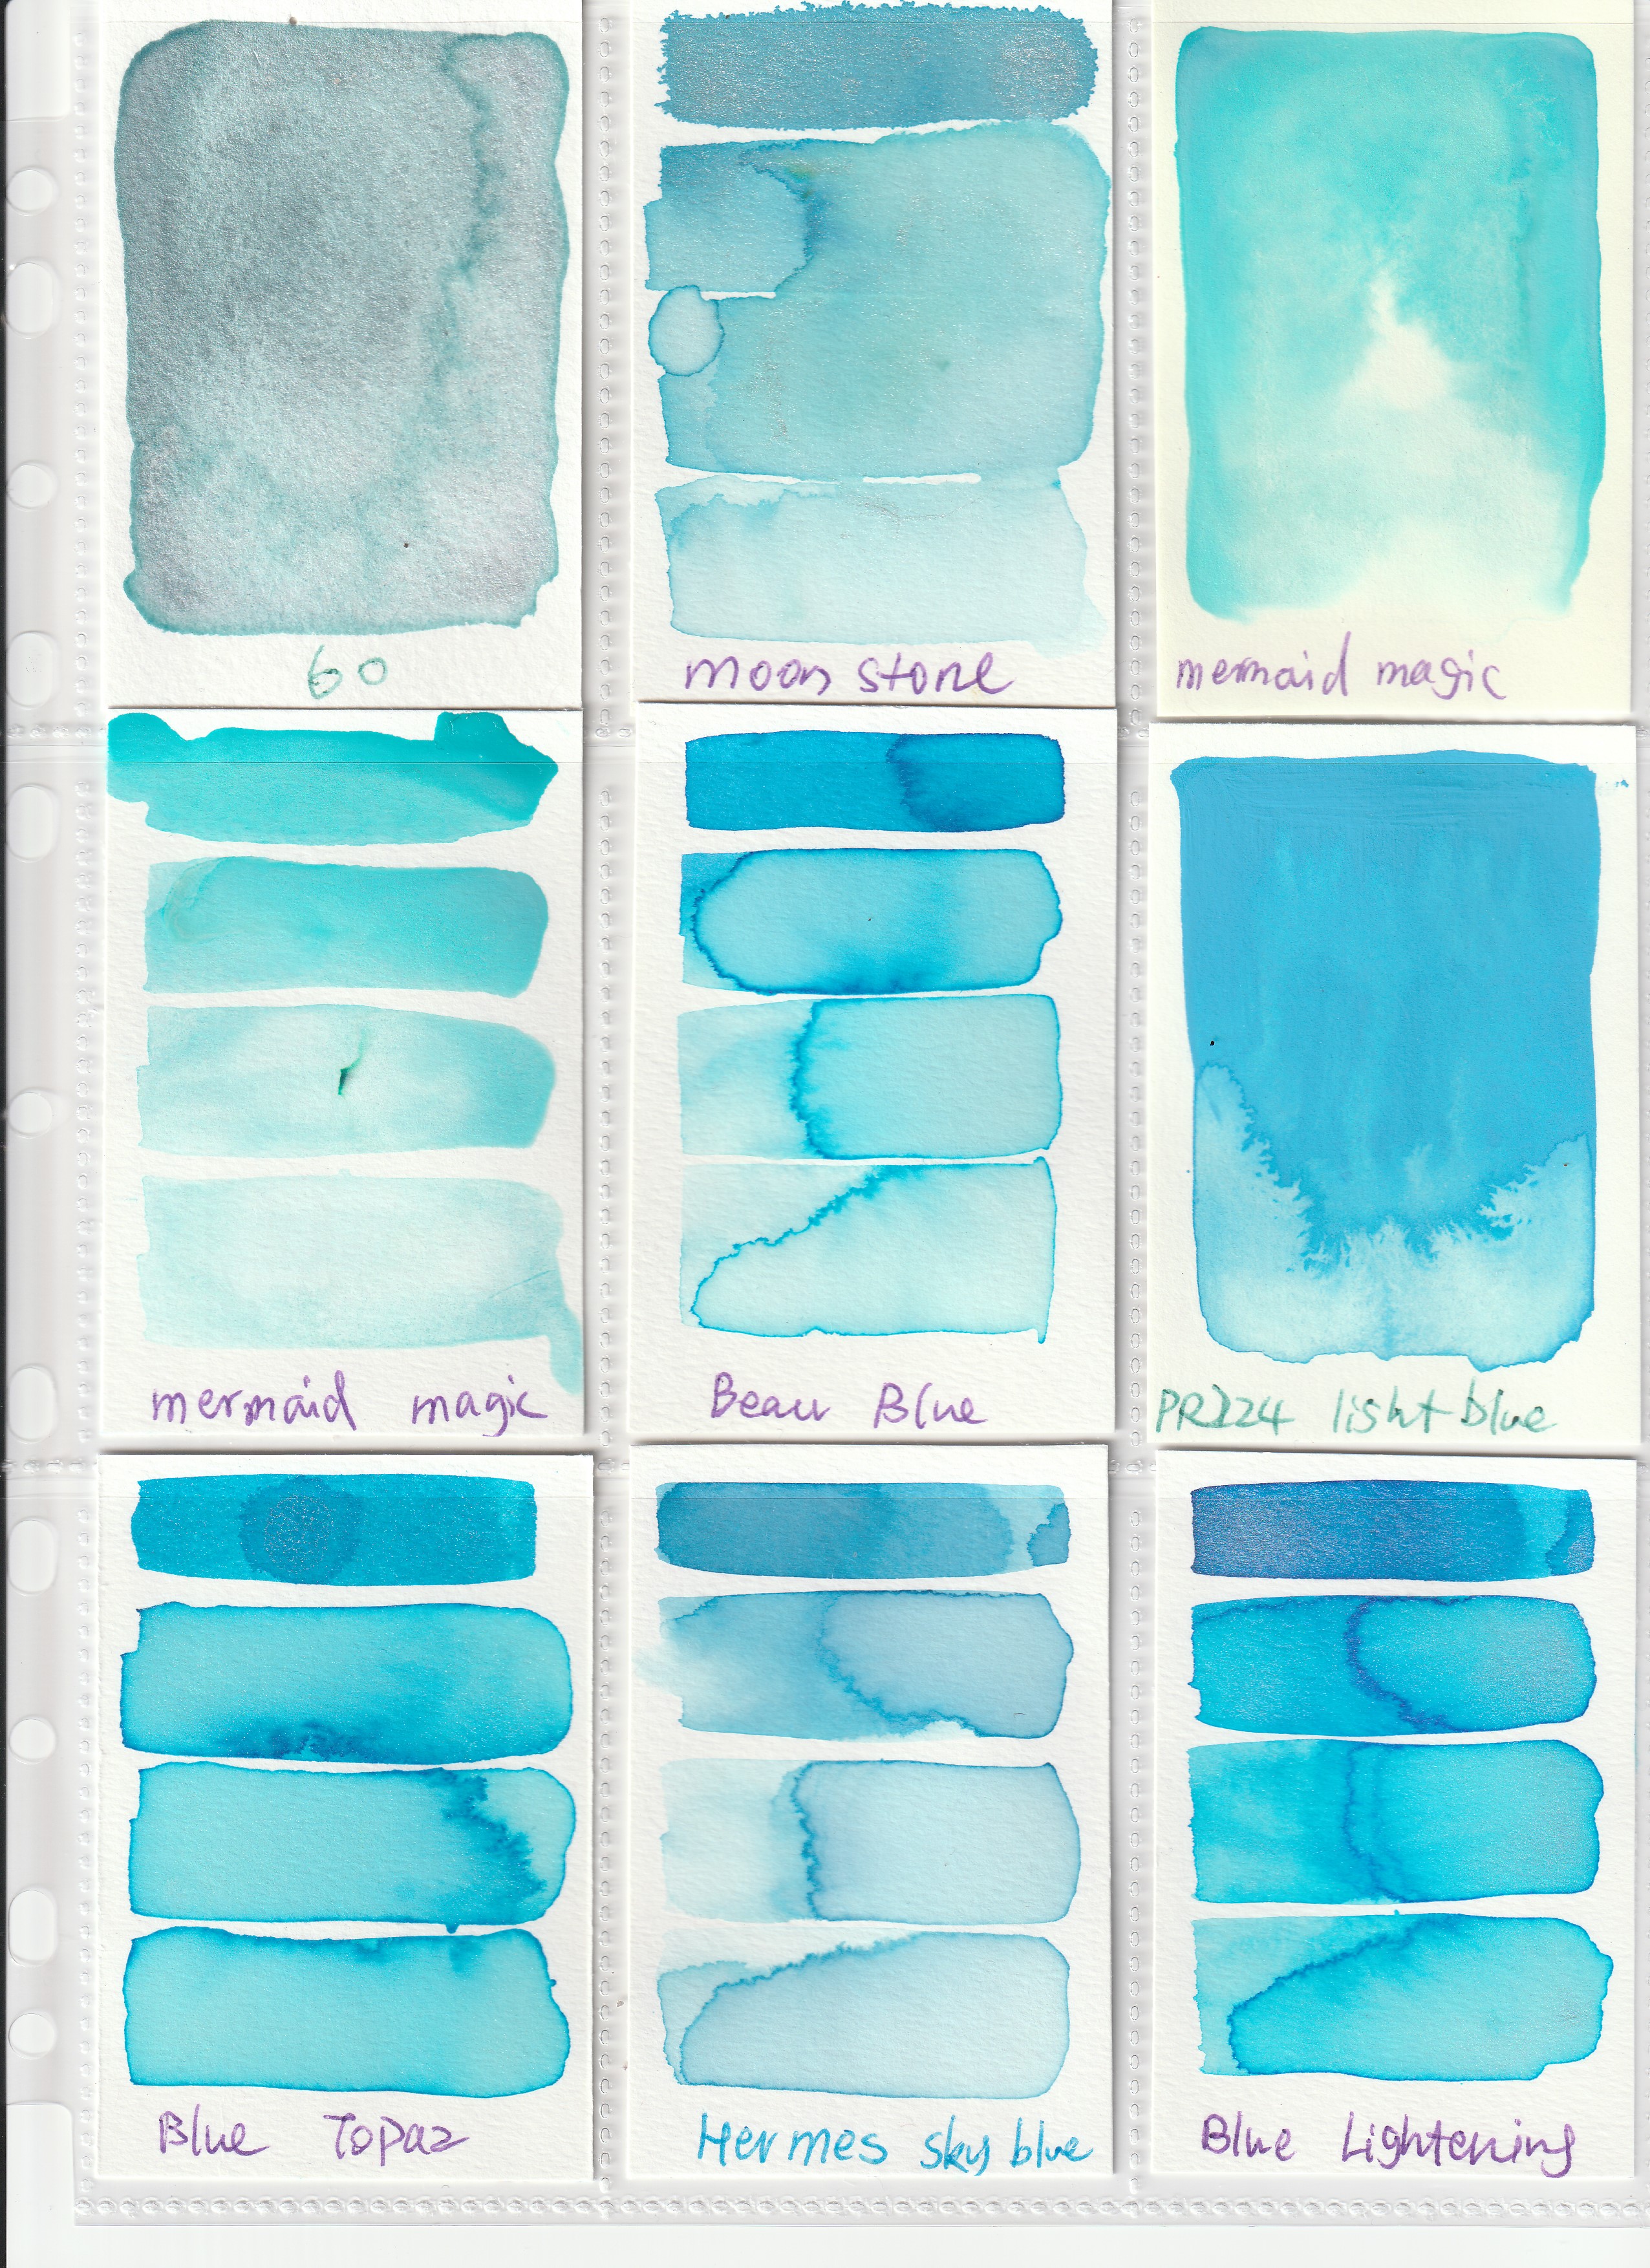 60
moon stone
mermaid magic
mermaid magic
Beau Blue
light blue
Blue Topaz
Hermes sky blue
Blue Lightening